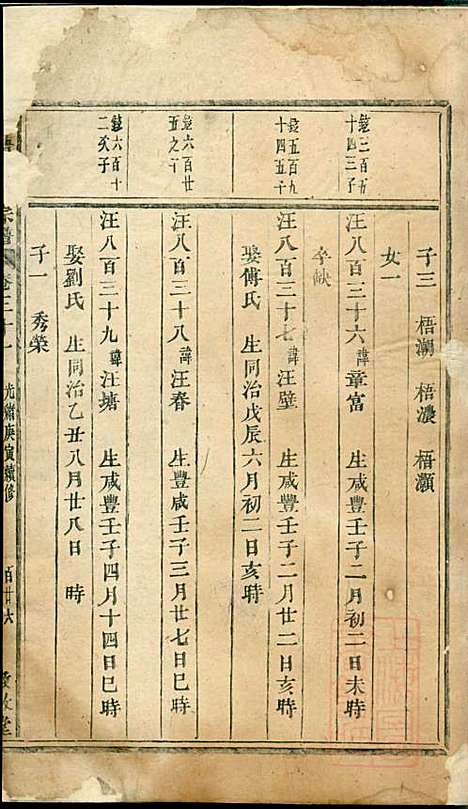 子三 梧潮 梧濃 梧灝
女一
鏡三百五十四三子
汪八百三十六 諱章富 生咸豐壬子二月初二日未時
卒缺
鏡五百九十四五子
汪八百三十七 諱汪璧 生咸豐壬子二月廿二日亥時
娶傅氏 生同治戊辰六月初二日亥時
鏡六百廿五之子
汪八百三十八 諱汪春 生豐咸壬子三月廿七日巳時
鏡六百十二次子
汪八百三十九 諱汪塘 生咸豐壬子四月十四日巳時
娶劉氏 生同治乙丑八月廿八日 時
子一 秀榮
宗譜 卷三十一 光緒庚寅續修 百廿六 堂